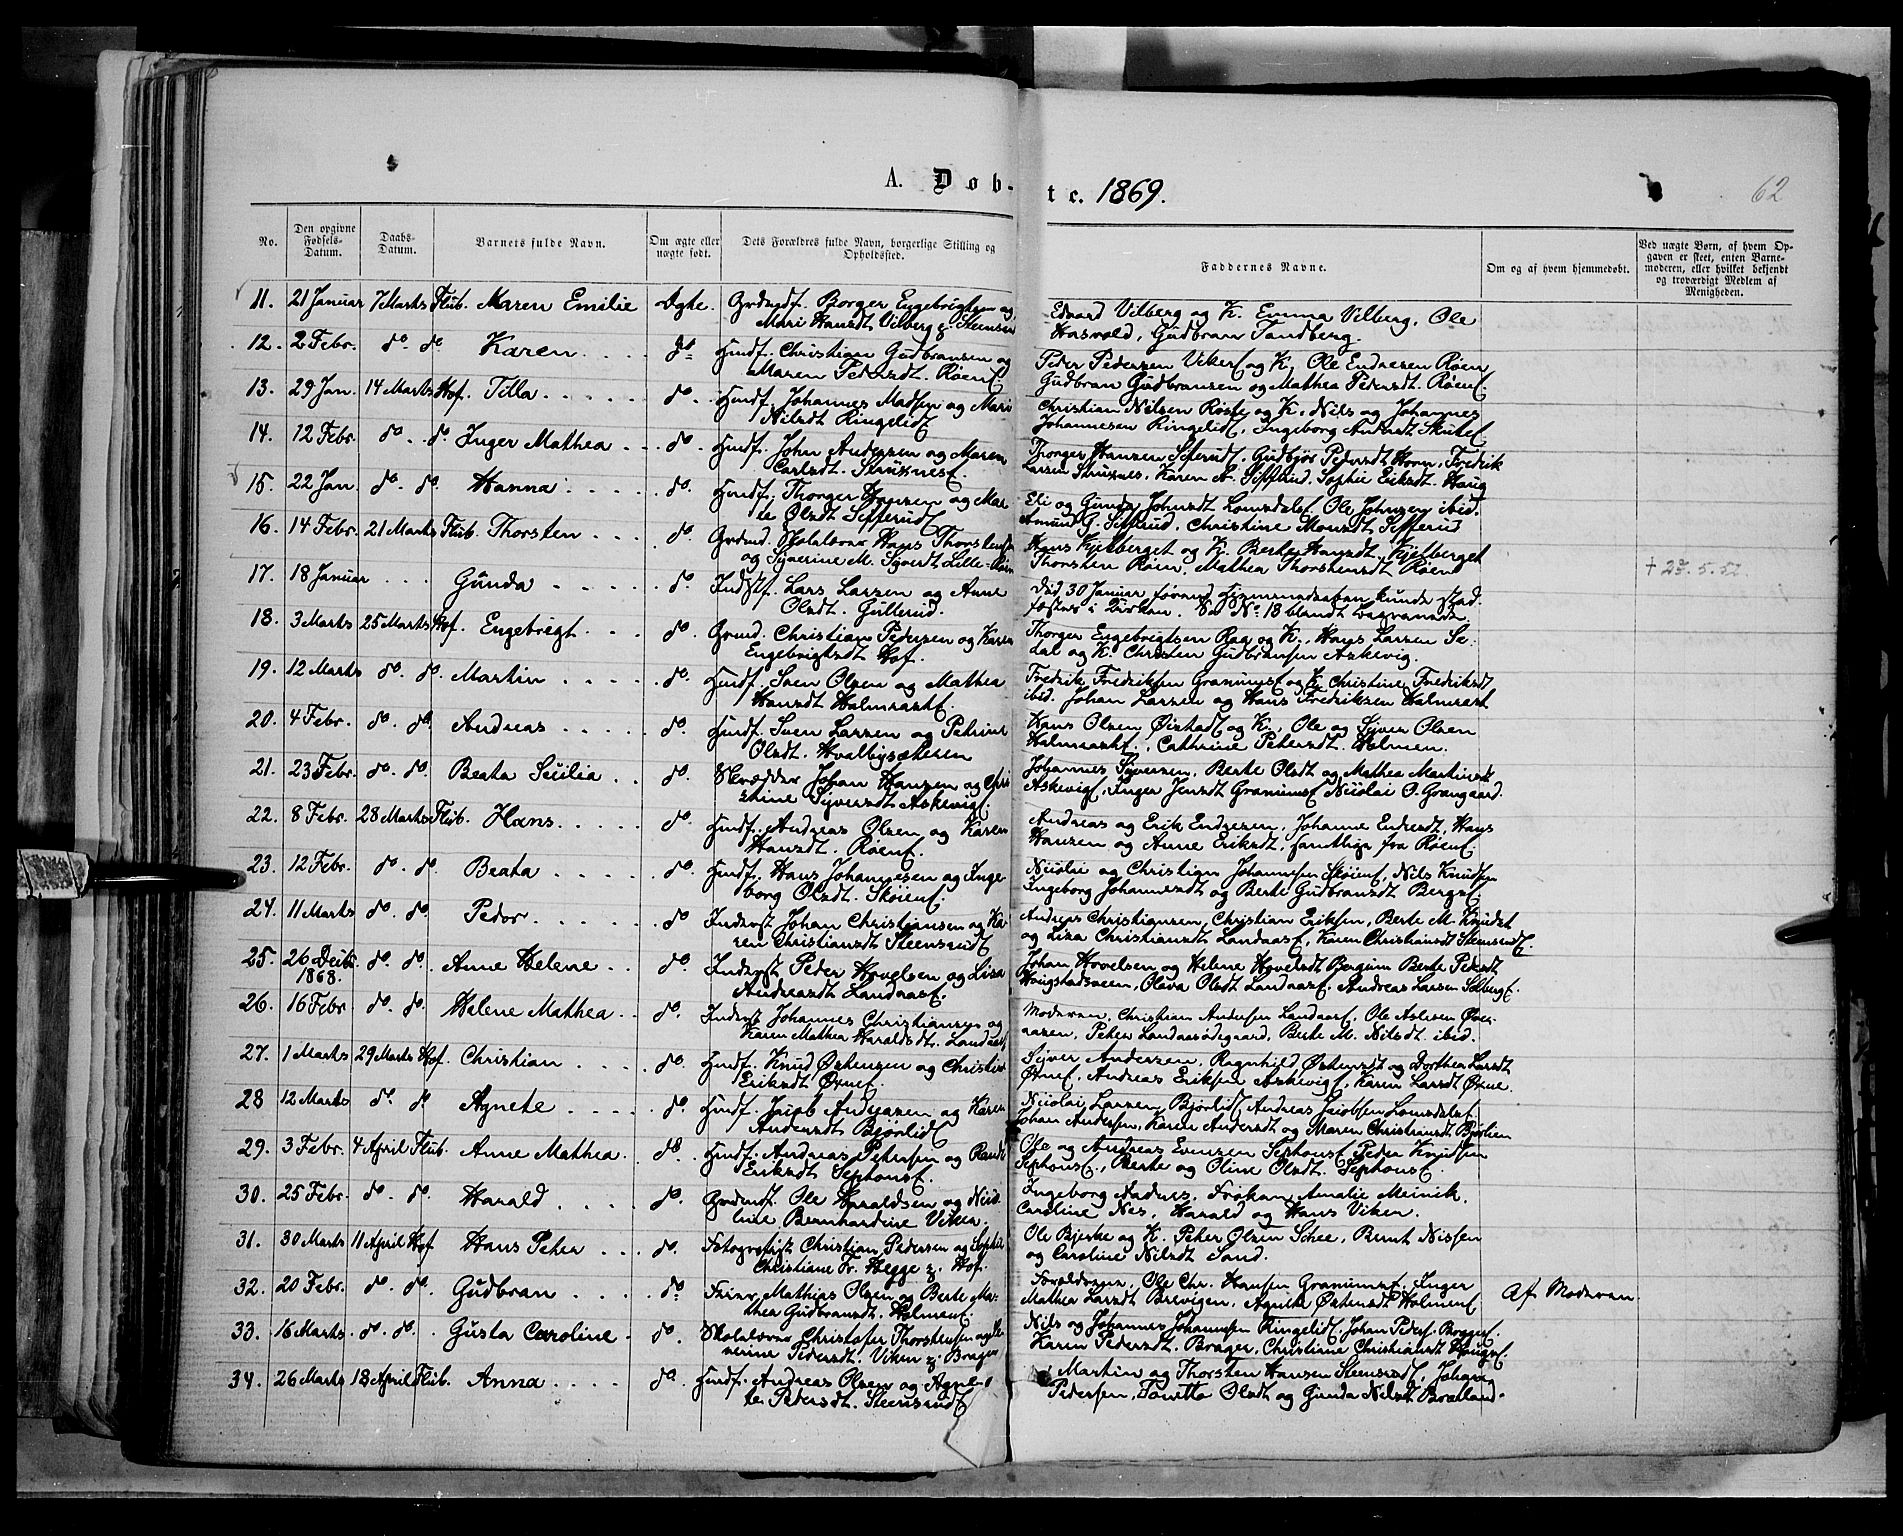 A. Døb-
te. 1869.
62
No.
Den opgivne Fødsels-Datum.
Daabs-Datum.
Barnets fulde Navn.
Om ægte eller uægte født.
Dets Forældres fulde Navn, borgerlige Stilling og Opholdssted.
Faddernes Navne.
Om og af hvem hjemmedøbt.
Ved uægte Børn, af hvem Op-
gaven er skeet, enten Barne-
moderen, eller hvilket bekjendt
og troværdigt Medlem af
Menigheden.
11. 21 Januar 7 Marts Flub. Maren Emilie Ægte Grdmdf. Borger Engebrigtsen og Edvard Vilberg og K. Emma Vilberg, Ole
Mari Hansdt Vilberg Hasvold, Gudbran Tandberg.
12. 2 Febr. do. do. Karen do. Husmf. Christian Gudbransen og Peder Pedersen Viker og K., Ole Endresen Røen
Maren Pedersdt. Røen Gudbran Gudbransen og Mathea Pedersdt. Røen
13. 29 Jan. 14 Marts Hof. Tilla do. Husmf. Johannes Madsen og Mari Christian Nilsen Røste og K., Nils og Johannes
Nilsdt Ringelid Johannesen Ringelid, Ingeborg
14. 12 Febr. do. do. Inger Mathea do. Husmf. John Andersen og Maren Thorger Hansen
Carlsdt. Struxnes Larsen Struxnes, Karen
15. 22 Jan. do. do. Hanna do. Husmf. Thorger Hansen og Ma- Eli og Gunda Johnsdt Lomsdalen Ole Johnsen ibid.
Olsdt Sefferud Christine
16. 14 Febr. 21 Marts Flub. Thorsten do. Skolelærer Hans Thorstensen Hans Kjelberget og K. Berte Hansdt. Kjelberget
og Syverine M. Syversdt Lille-Røen Thorsten Røen, Mathea Thorstensdt Røen
17. 18 Januar Gunda do. Indstf. Lars Larsen og Anne Død 30 Januar førend Hjemmedaaben kunde stad-
Olsdt. Gullerud. fæstes i Kirken. Se No 18 blandt Begravede.
+ 23.5.52.
18. 3 Marts 25 Marts Hof. Engebrigt do. Christian Pedersen og Karen Thorger Engebrigtsen Raa og K., Hans Larsen Se-
Engebrigtsdt Hof. dal og K. Christen Gudbransen Askevig.
19. 12 Marts do. do. Martin do. Husmf. Sven Olsen og Mathea Fredrik Fredriksen Granum og K. Christine Fredriksdt
Hansdt Halmrast ibid. Johan Larsen og Hans Fredriksen Halmrast
20. 4 Febr. do. do. Andreas do. Husmf. Sven Larsen og Petrine Hans Olsen Øistad og K., Ole og Syver Olsen
Olsdt. Hvalbysæteren Halmrast, Cathrine Petersdt. Holmen.
21. 23 Febr. do. do. Beata Secilia do. Skrædder Johan Hansen og Chri- Johannes Syversen, Berte Olsdt og Mathea Martinsdt
stine Syversdt Askevig. Askevig, Inger Jensdt Granum Nicolai O. Grangaard.
22. 8 Febr. 28 Marts Flub. Hans do. Husmf. Andreas Olsen og Karen Andreas og Erik Endresen, Johanne Endresdt, Hans
Hansdt. Røen Hansen og Anne Eriksdt, samtlige fra Røen.
23. 12 Febr. do. do. Beata do. Husmf. Hans Johannesen og Inge- Nicolai og Christian Johannesen Skøien, Nils Knudsen
borg Olsdt. Skøien. Ingeborg Johannesdt og Berte Gudbransdt Berg
24. 11 Marts do. do. Peder do. Inderst Johan Christiansen og Ka- Andreas Christiansen, Christian Eriksen, Berte M. Knudsdt
ren Christiansdt Steensrud og Lisa Christiansdt Landaas, Karen Christiansdt Steensrud
25. 26 Decbr. 1868. do. do. Anne Helene do. Inderst Peder Hovelsen og Lisa Johan Hovelsen og Helene Hovelsdt Bergum Berte Pedersdt
Andreasdt Landaas. Haugstadsveen, Oliva Olsdt Landaas. Andreas Larsen Solberg.
26. 16 Febr. do. do. Helene Mathea do. Inderst Johannes Christiansen og Moderen, Christian Andersen Landaas, Ole
Karen Mathea Haraldsdt. Landaas Peter Landaasødegaard, Berte M. Nilsdt ibid.
27. 1 Marts 29 Marts Hof. Christian do. Husmf. Knud Østensen og Christine Syver Andersen, Ragnhild Østensdt og Dorthea Larsdt
Eriksdt Øxne. Øxne, Andreas Eriksen Askevig, Karen Larsdt Øxne.
28 12 Marts do. do. Agnete do. Husmf. Jacob Andreasen og Karen Nicolai Larsen Bjørlid Andreas Jacobsen Lomsdalen
Andersdt Bjørlid Johan Andersen, Karen Andersdt og Maren Christiansdt Bjørlien
29. 3 Febr. 4 April Flub. Anne Mathea do. Husmf. Andreas Petersen og Randi Ole og Andreas Evensen Sephons Peder Knudsen
Eriksdt Sephons. Sephons, Berte og Oline Olsdt. Sephons.
30. 25 Febr. do. do. Harald do. Ole Haraldsen og Nico- Ingeborg Aadnes, Frøken Amalie Meinik,
line Bernhardine Viken. Caroline Nes, Harald og Hans Viken.
31. 30 Marts 11 April Hof Hans Peter do. Fotografist Christian Pedersen og Sophie Ole Bjerke og K. Peter Olsen Schee, Bernt Nissen
Christiane Fr. Hegge Hof. og Caroline Nilsdt Sand.
32. 20 Febr. do. do. Gudbran do. Mathias Olsen og Berte Ma- Forældrene, Ole Chr. Hansen Granum. Inger
thea Gudbransdt. Holmen. Mathea Larsdt Brevigen, Agnethe Østensdt Holmen Af Moderen
33. 16 Marts do. do. Gusta Caroline do. Skolelærer Christofer Thorstensen og Se- Nils og Johannes Johannesen Ringelid, Johan Peders.
verine Pedersdt. Viken Brager Karen Pedersdt. Brager, Christiane Christiansdt Haug
34. 26 Marts 18 April Flub. Anna do. Husmf. Andreas Olsen og Agne- Martin og Thorsten Hansen Steensrud, Johan
te Pedersdt. Steensrud Pedersen, Olsdt og Gunda Nilsdt Brætland